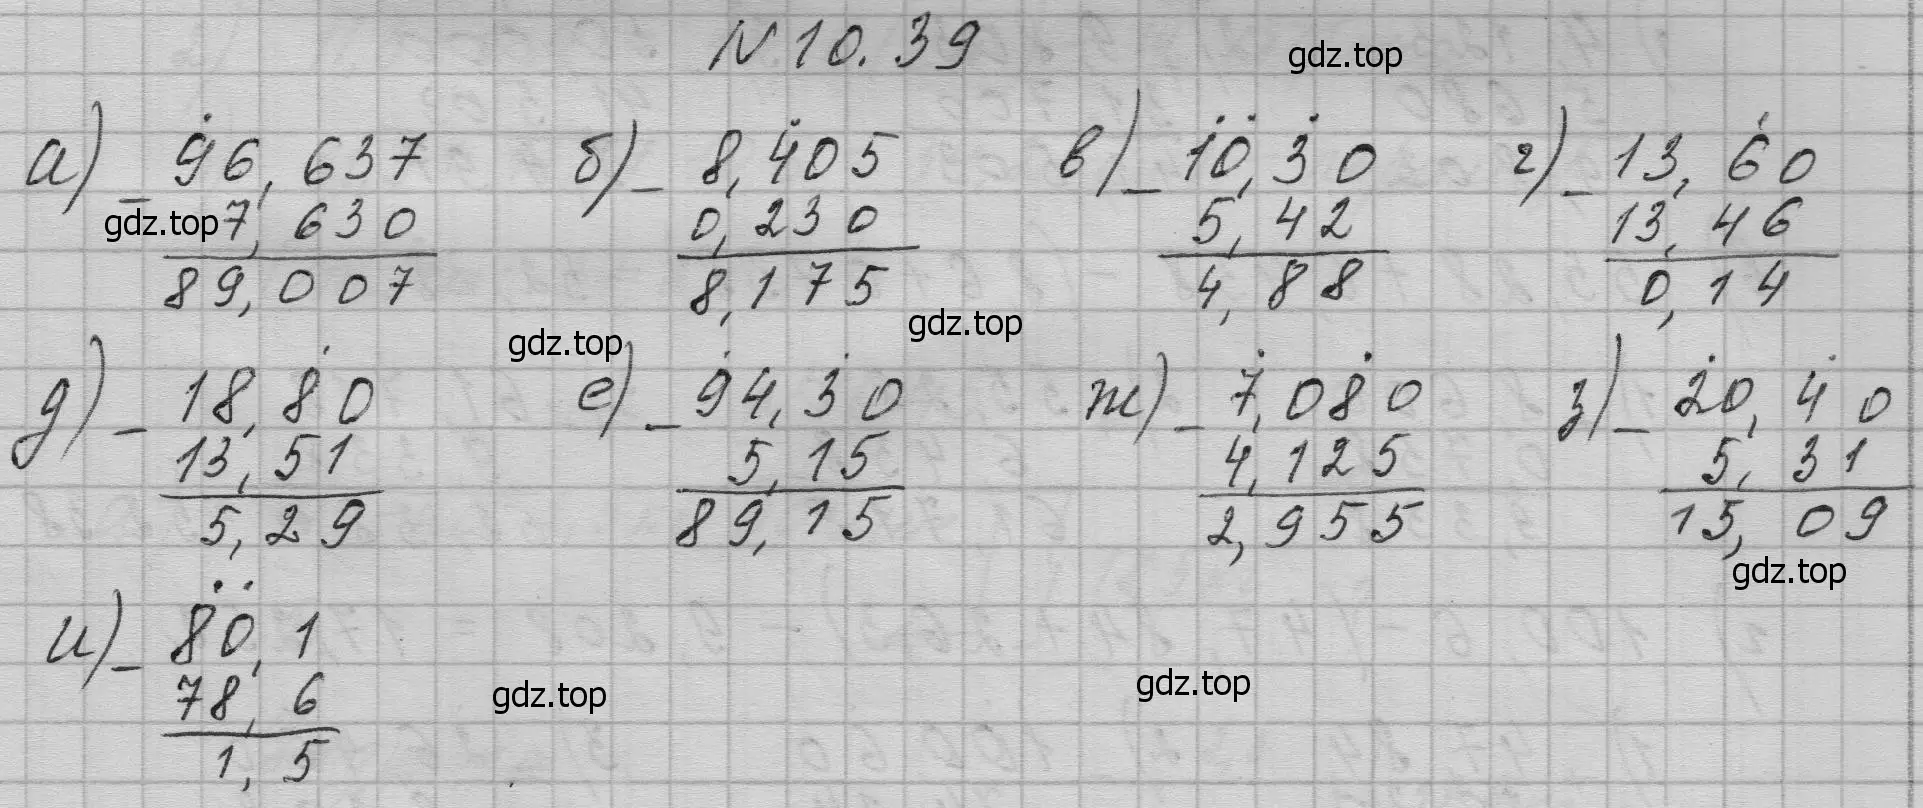 N 10.39 gdz.top
а) - 96,637 б) - 8,405 в) - 10,30 г) - 13,60
gdz.top 7,630 0,230 5,42 13,46
89,007 8,175 4,88 0,14
gdz.top gdz.top
д) - 18,80 е) - 94,30 ж) - 7,080 з) - 20,40
13,51 5,15 4,125 5,31
5,29 89,15 2,955 15,09
gdz.top
и) - 80,1
78,6 gdz.top gdz.top
1,5